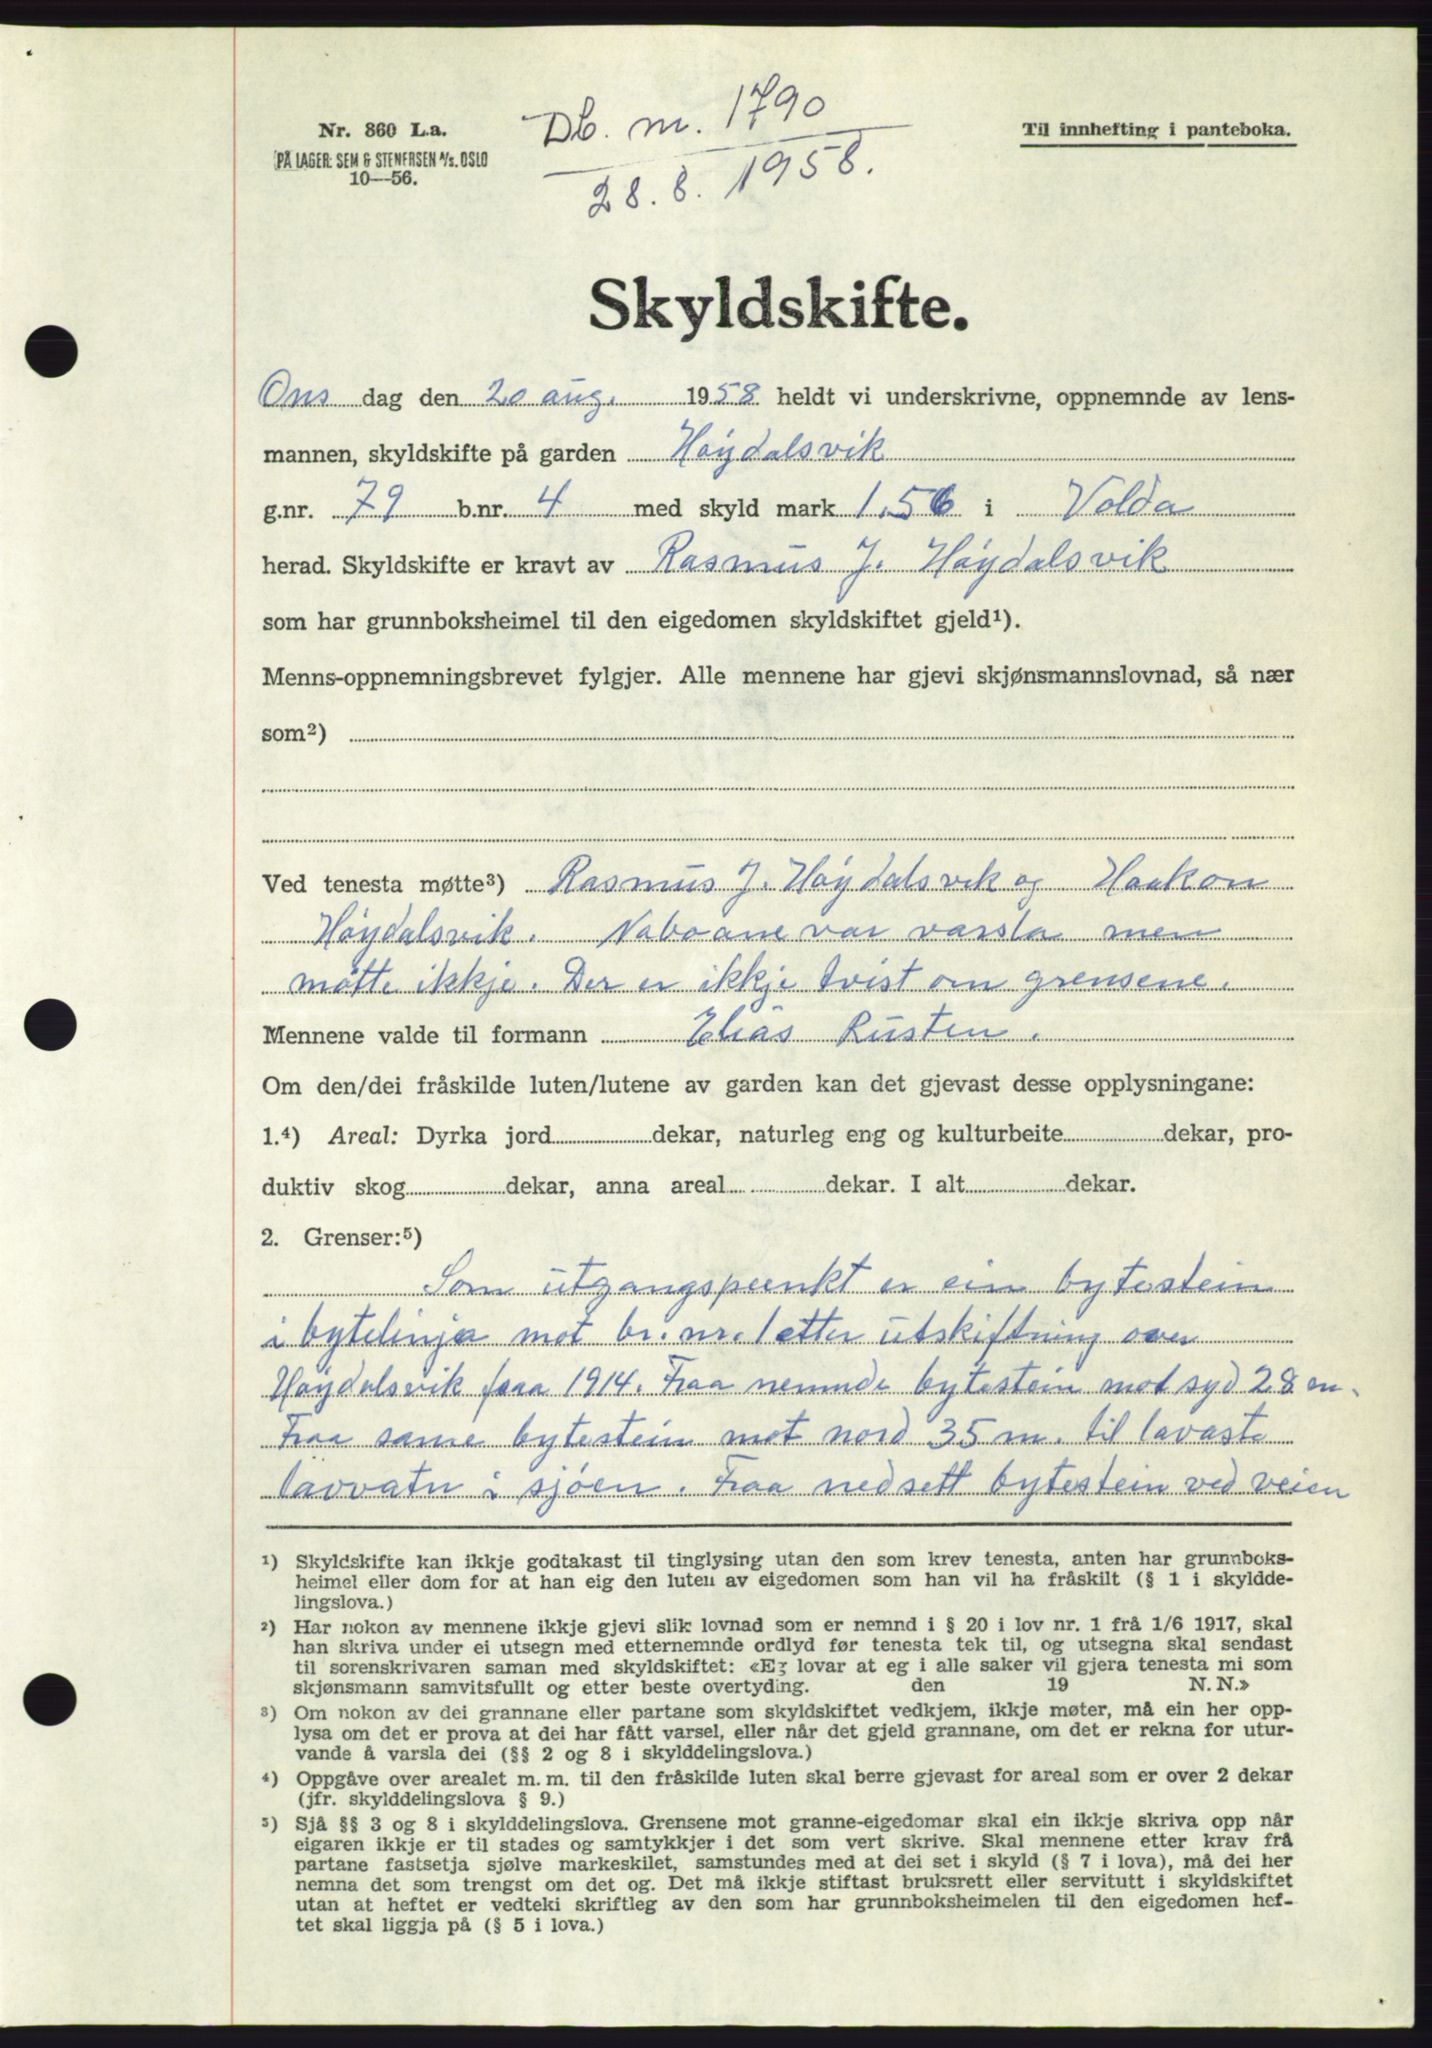 Nr. 860 L.a.
PÅ LAGER: SEM & STENERSEN A/S. OSLO
10—56.
Db. nr. 1790
28.8. 1958.
Til innhefting i panteboka.
Skyldskifte.
Ons dag den 20 aug. 1958 heldt vi underskrivne, oppnemnde av lens-
mannen, skyldskifte på garden Høydalsvik
g.nr. 79 b.nr. 4 med skyld mark 1.56 i Volda
herad. Skyldskifte er kravt av Rasmus J. Høydalsvik
som har grunnboksheimel til den eigedomen skyldskiftet gjeld¹).
Menns-oppnemningsbrevet fylgjer. Alle mennene har gjevi skjønsmannslovnad, så nær
som²)
Ved tenesta møtte³) Rasmus J. Høydalsvik og Haakon
Høydalsvik. Naboane var varsla men
møtte ikkje. Der er ikkje tvist om grensene.
Mennene valde til formann Elias Rusten.
Om den/dei fråskilde luten/lutene av garden kan det gjevast desse opplysningane:
1.⁴) Areal: Dyrka jord dekar, naturleg eng og kulturbeite dekar, pro-
duktiv skog dekar, anna areal dekar. I alt dekar.
2. Grenser:⁵)
Som utgangspunkt er ein bytestein
i bytelinja mot br. nr. 1 etter utskiftning over
Høydalsvik fraa 1914. Fraa nemnde bytestein mot syd 28 m.
Fraa same bytestein mot nord 35 m. til lavaste
lavvatn i sjøen. Fraa nedsett bytestein ved veien
¹) Skyldskifte kan ikkje godtakast til tinglysing utan den som krev tenesta, anten har grunnboks-
heimel eller dom for at han eig den luten av eigedomen som han vil ha fråskilt (§ 1 i skyldde-
lingslova.)
²) Har nokon av mennene ikkje gjevi slik lovnad som er nemnd i § 20 i lov nr. 1 frå 1/6 1917, skal
han skriva under ei utsegn med etternemnde ordlyd før tenesta tek til, og utsegna skal sendast
til sorenskrivaren saman med skyldskiftet: «Eg lovar at eg i alle saker vil gjera tenesta mi som
skjønsmann samvitsfullt og etter beste overtyding. den 19 N. N.»
³) Om nokon av dei grannane eller partane som skyldskiftet vedkjem, ikkje møter, må ein her opp-
lysa om det er prova at dei har fått varsel, eller når det gjeld grannane, om det er rekna for utur-
vande å varsla dei (§§ 2 og 8 i skylddelingslova.)
⁴) Oppgåve over arealet m. m. til den fråskilde luten skal berre gjevast for areal som er over 2 dekar
(jfr. skylddelingslova § 9.)
⁵) Sjå §§ 3 og 8 i skylddelingslova. Grensene mot granne-eigedomar skal ein ikkje skriva opp når
eigaren ikkje er til stades og samtykkjer i det som vert skrive. Skal mennene etter krav frå
partane fastsetja sjølve markeskilet, samstundes med at dei set i skyld (§ 7 i lova), må dei her
nemna det som trengst om det og. Det må ikkje stiftast bruksrett eller servitutt i skyldskiftet
utan at heftet er vedteki skriftleg av den som har grunnboksheimelen til den eigedomen hef-
tet skal liggja på (§ 5 i lova.)